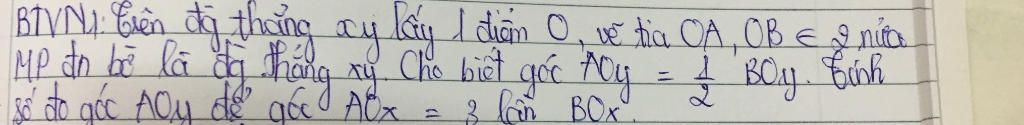 BTVN1: Trên đg thẳng xy lấy 1 điểm O, vẽ tia OA, OB ∈ 2 nửa
MP đn bờ là đg thẳng xy. Cho biết góc AOy = 1/2 BOy. Tính
số đo góc AOy để góc AOx = 3 lần BOx.